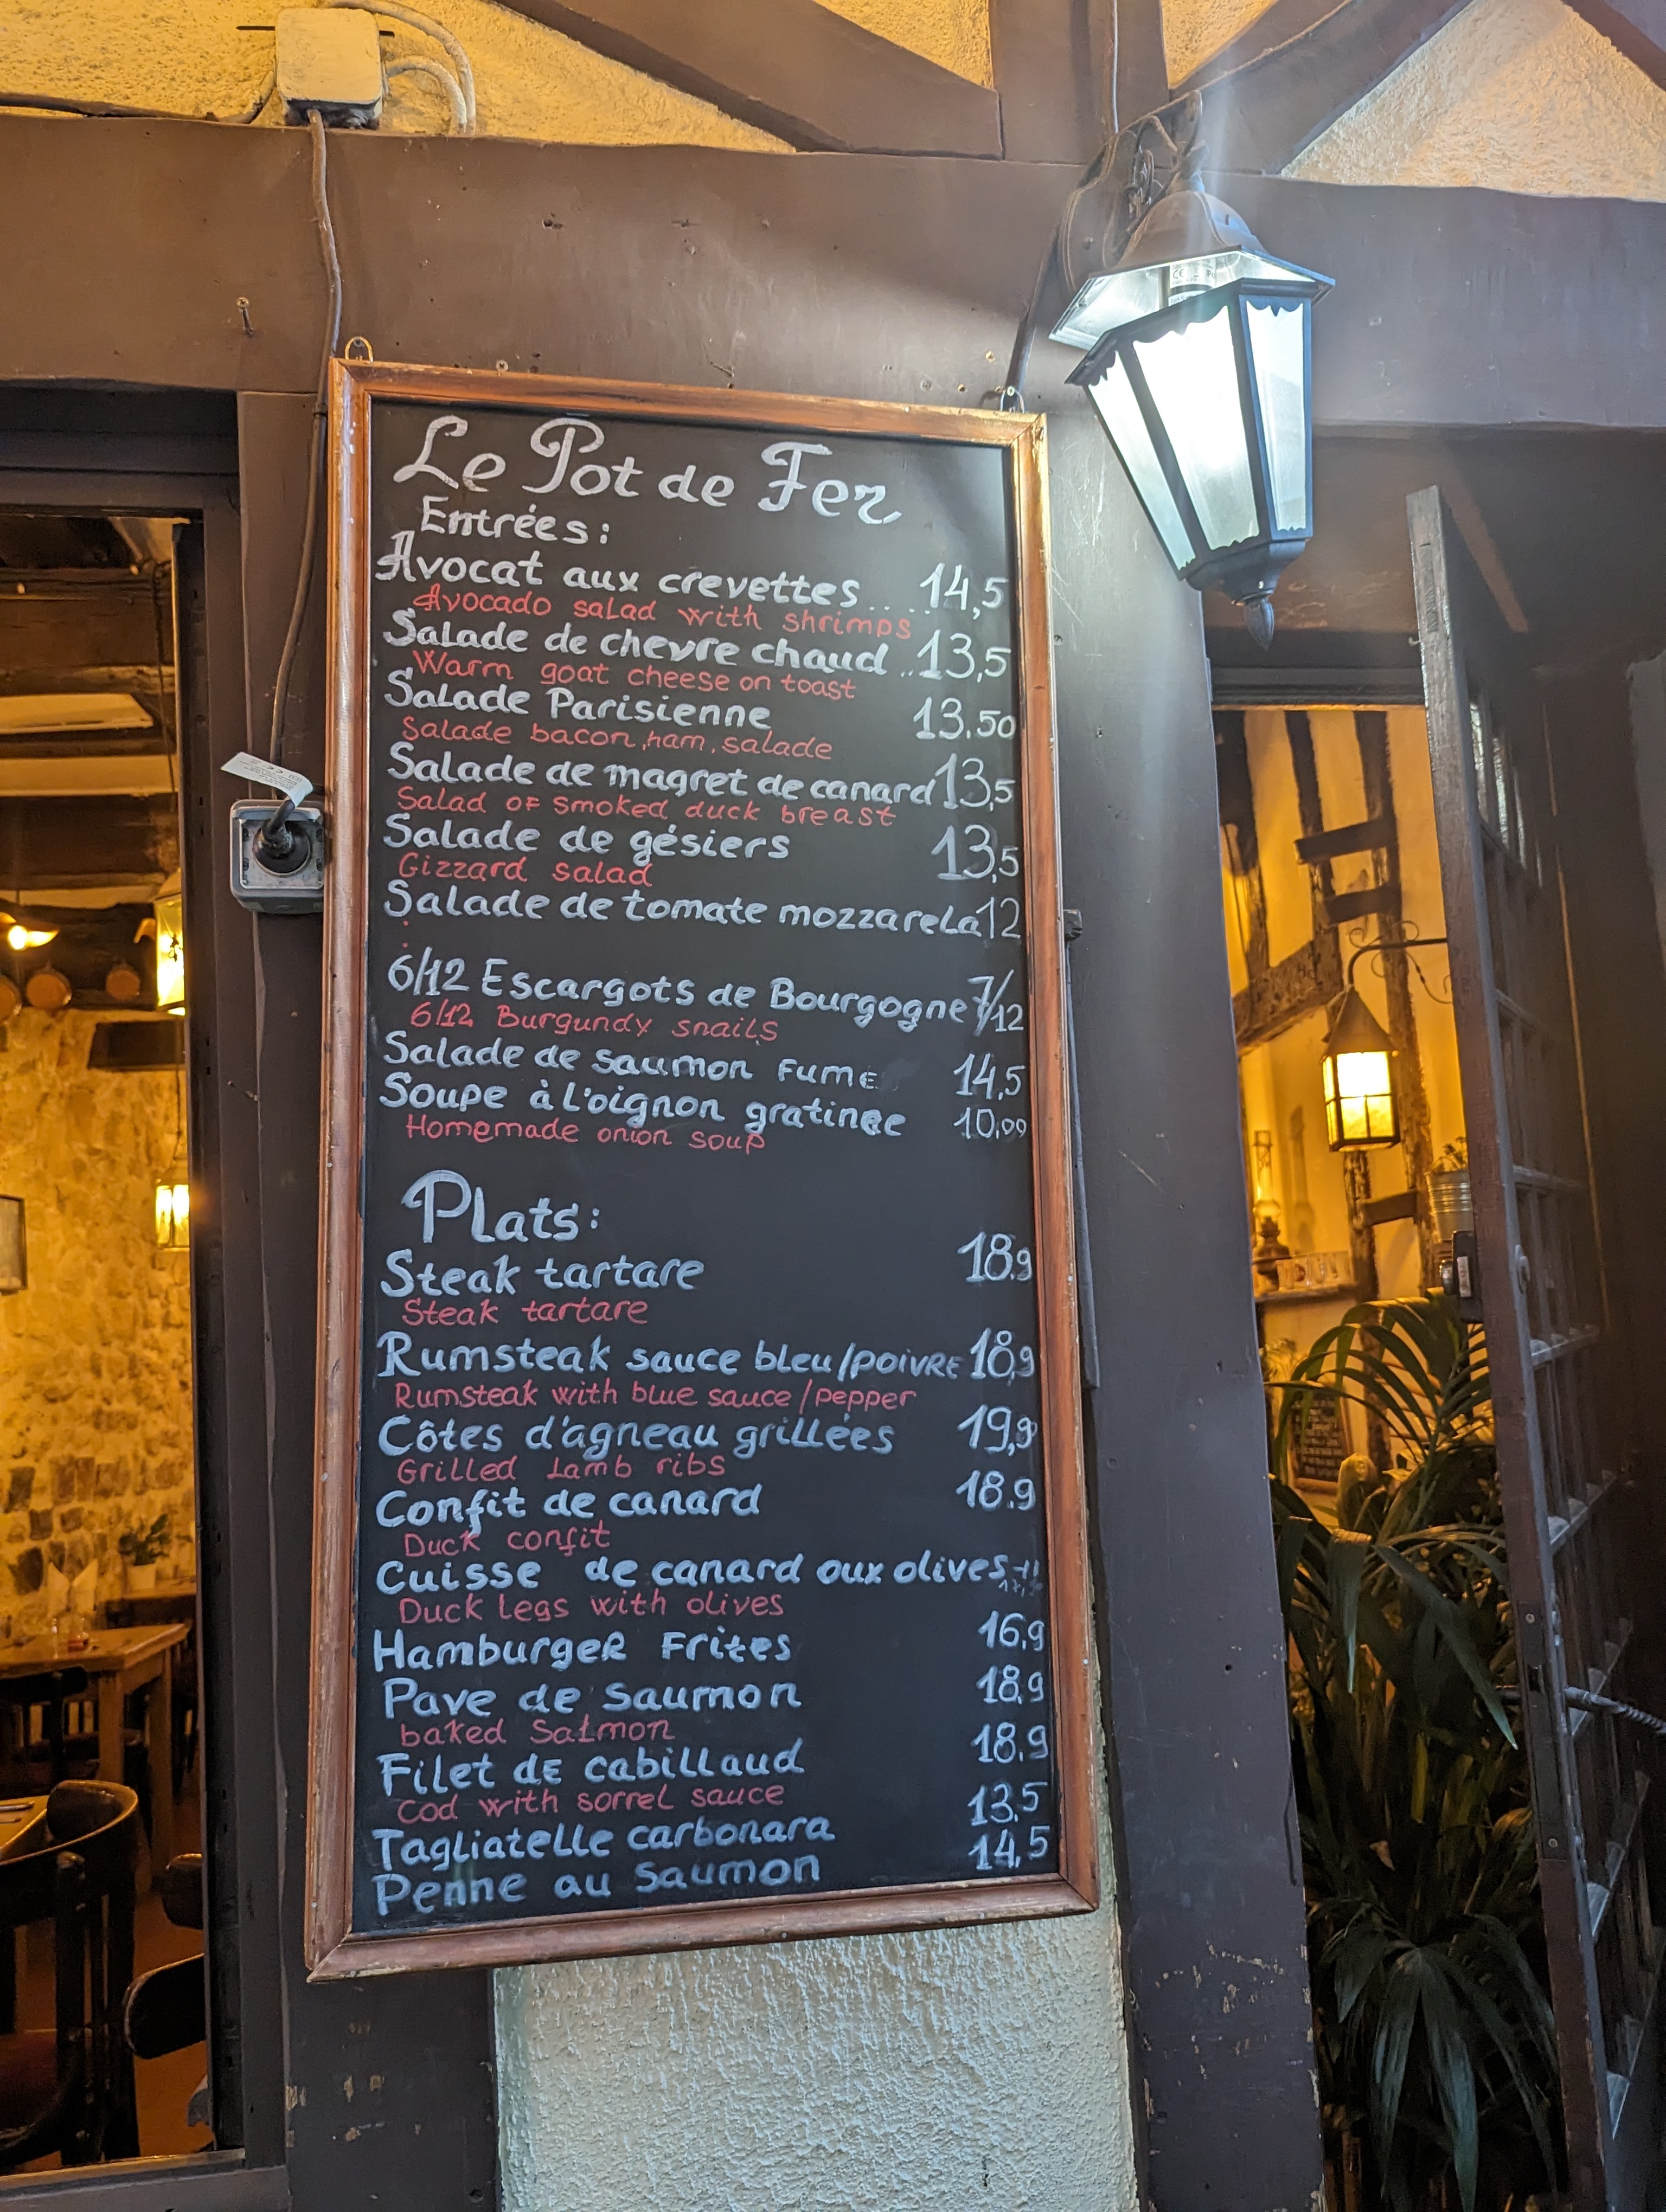 Le Pot de Fer
Entrées:
Avocat aux crevettes.... 14,5
Avocado salad with shrimps
Salade de chevre chaud .. 13,5
Warm goat cheese on toast
Salade Parisienne 13.50
Salade bacon, ham, salade
Salade de magret de canard 13,5
Salad of smoked duck breast
Salade de gésiers 13,5
Gizzard salad
Salade de tomate mozzarela 12
6/12 Escargots de Bourgogne 7/12
6/12 Burgundy snails
Salade de saumon fume 14,5
Soupe à l'oignon gratinee 10,00
Homemade onion soup
Plats:
Steak tartare 18.9
Steak tartare
Rumsteak sauce bleu/poivre 18,9
Rumsteak with blue sauce/pepper
Côtes d'agneau grillées 19,9
Grilled Lamb ribs
Confit de canard 18.9
Duck confit
Cuisse de canard oux olives
Duck Legs with olives
Hamburger Frites 16.9
Pave de Saumon 18.9
baked Salmon
Filet de cabillaud 18.9
Cod with sorrel sauce
Tagliatelle carbonara 13.5
Penne au Saumon 14,5